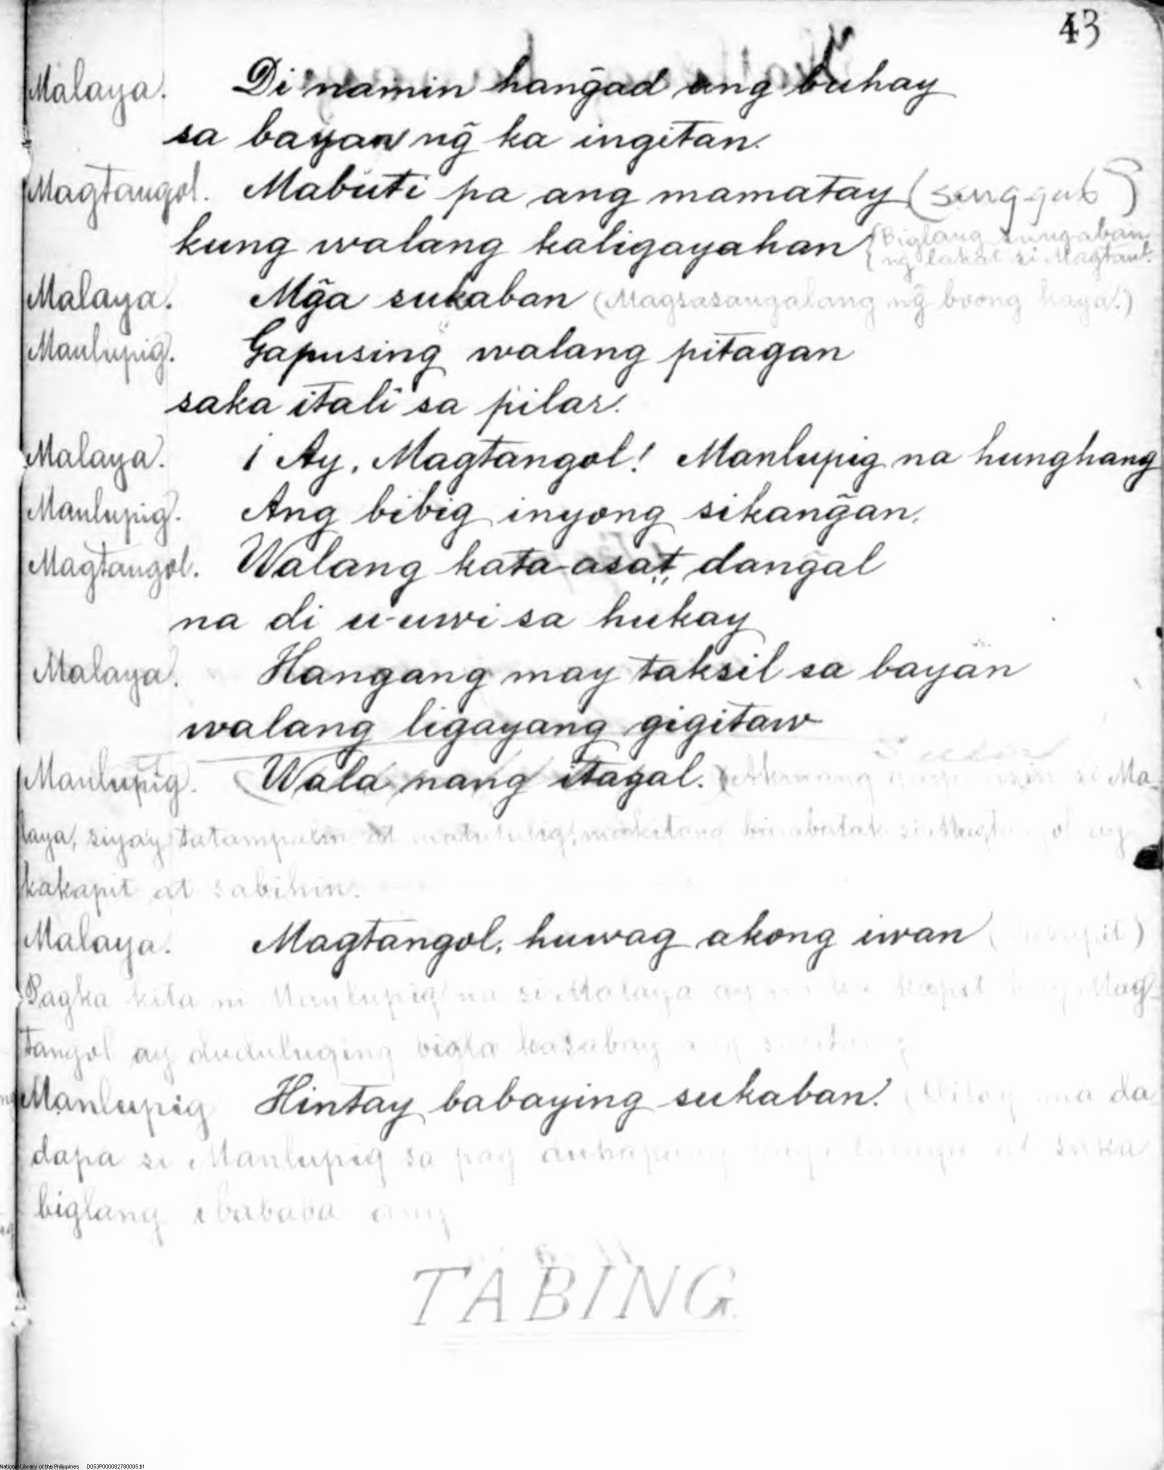 43
Malaya. Di namin hang̃ad ang buhay
sa bayan ng̃ ka ingitan.
Magtangol. Mabuti pa ang mamatay (sunggab)
kung walang kaligayahan (Biglang sungaban
ng̃ lakat si Magtan:
Malaya. Mg̃a sukaban (Magsasangalang ng̃ boong kaya.)
Manlupig. Gapusing walang pitagan
saka itali sa pilar.
Malaya. ¡Ay, Magtangol! Manlupig na hunghang
Manlupig. Ang bibig inyong sikang̃an.
Magtangol. Walang kata-asat dang̃al
na di u-uwi sa hukay
Malaya. Hangang may taksil sa bayan
walang ligayang gigitaw
Manlupig. Wala nang itagal. si Ma-
laya, siyay tatampalin at
kakapit at sabihin.
Malaya. Magtangol, huwag akong iwan
Pagka kita ni Manlupig na si Malaya ay kapit kay Mag-
tangol ay duduluging bigla kasabay ang
Manlupig Hintay babaying sukaban. da
dapa si Manlupig sa pag at saka
biglang ibababa ang
TABING
National Library of the Philippines